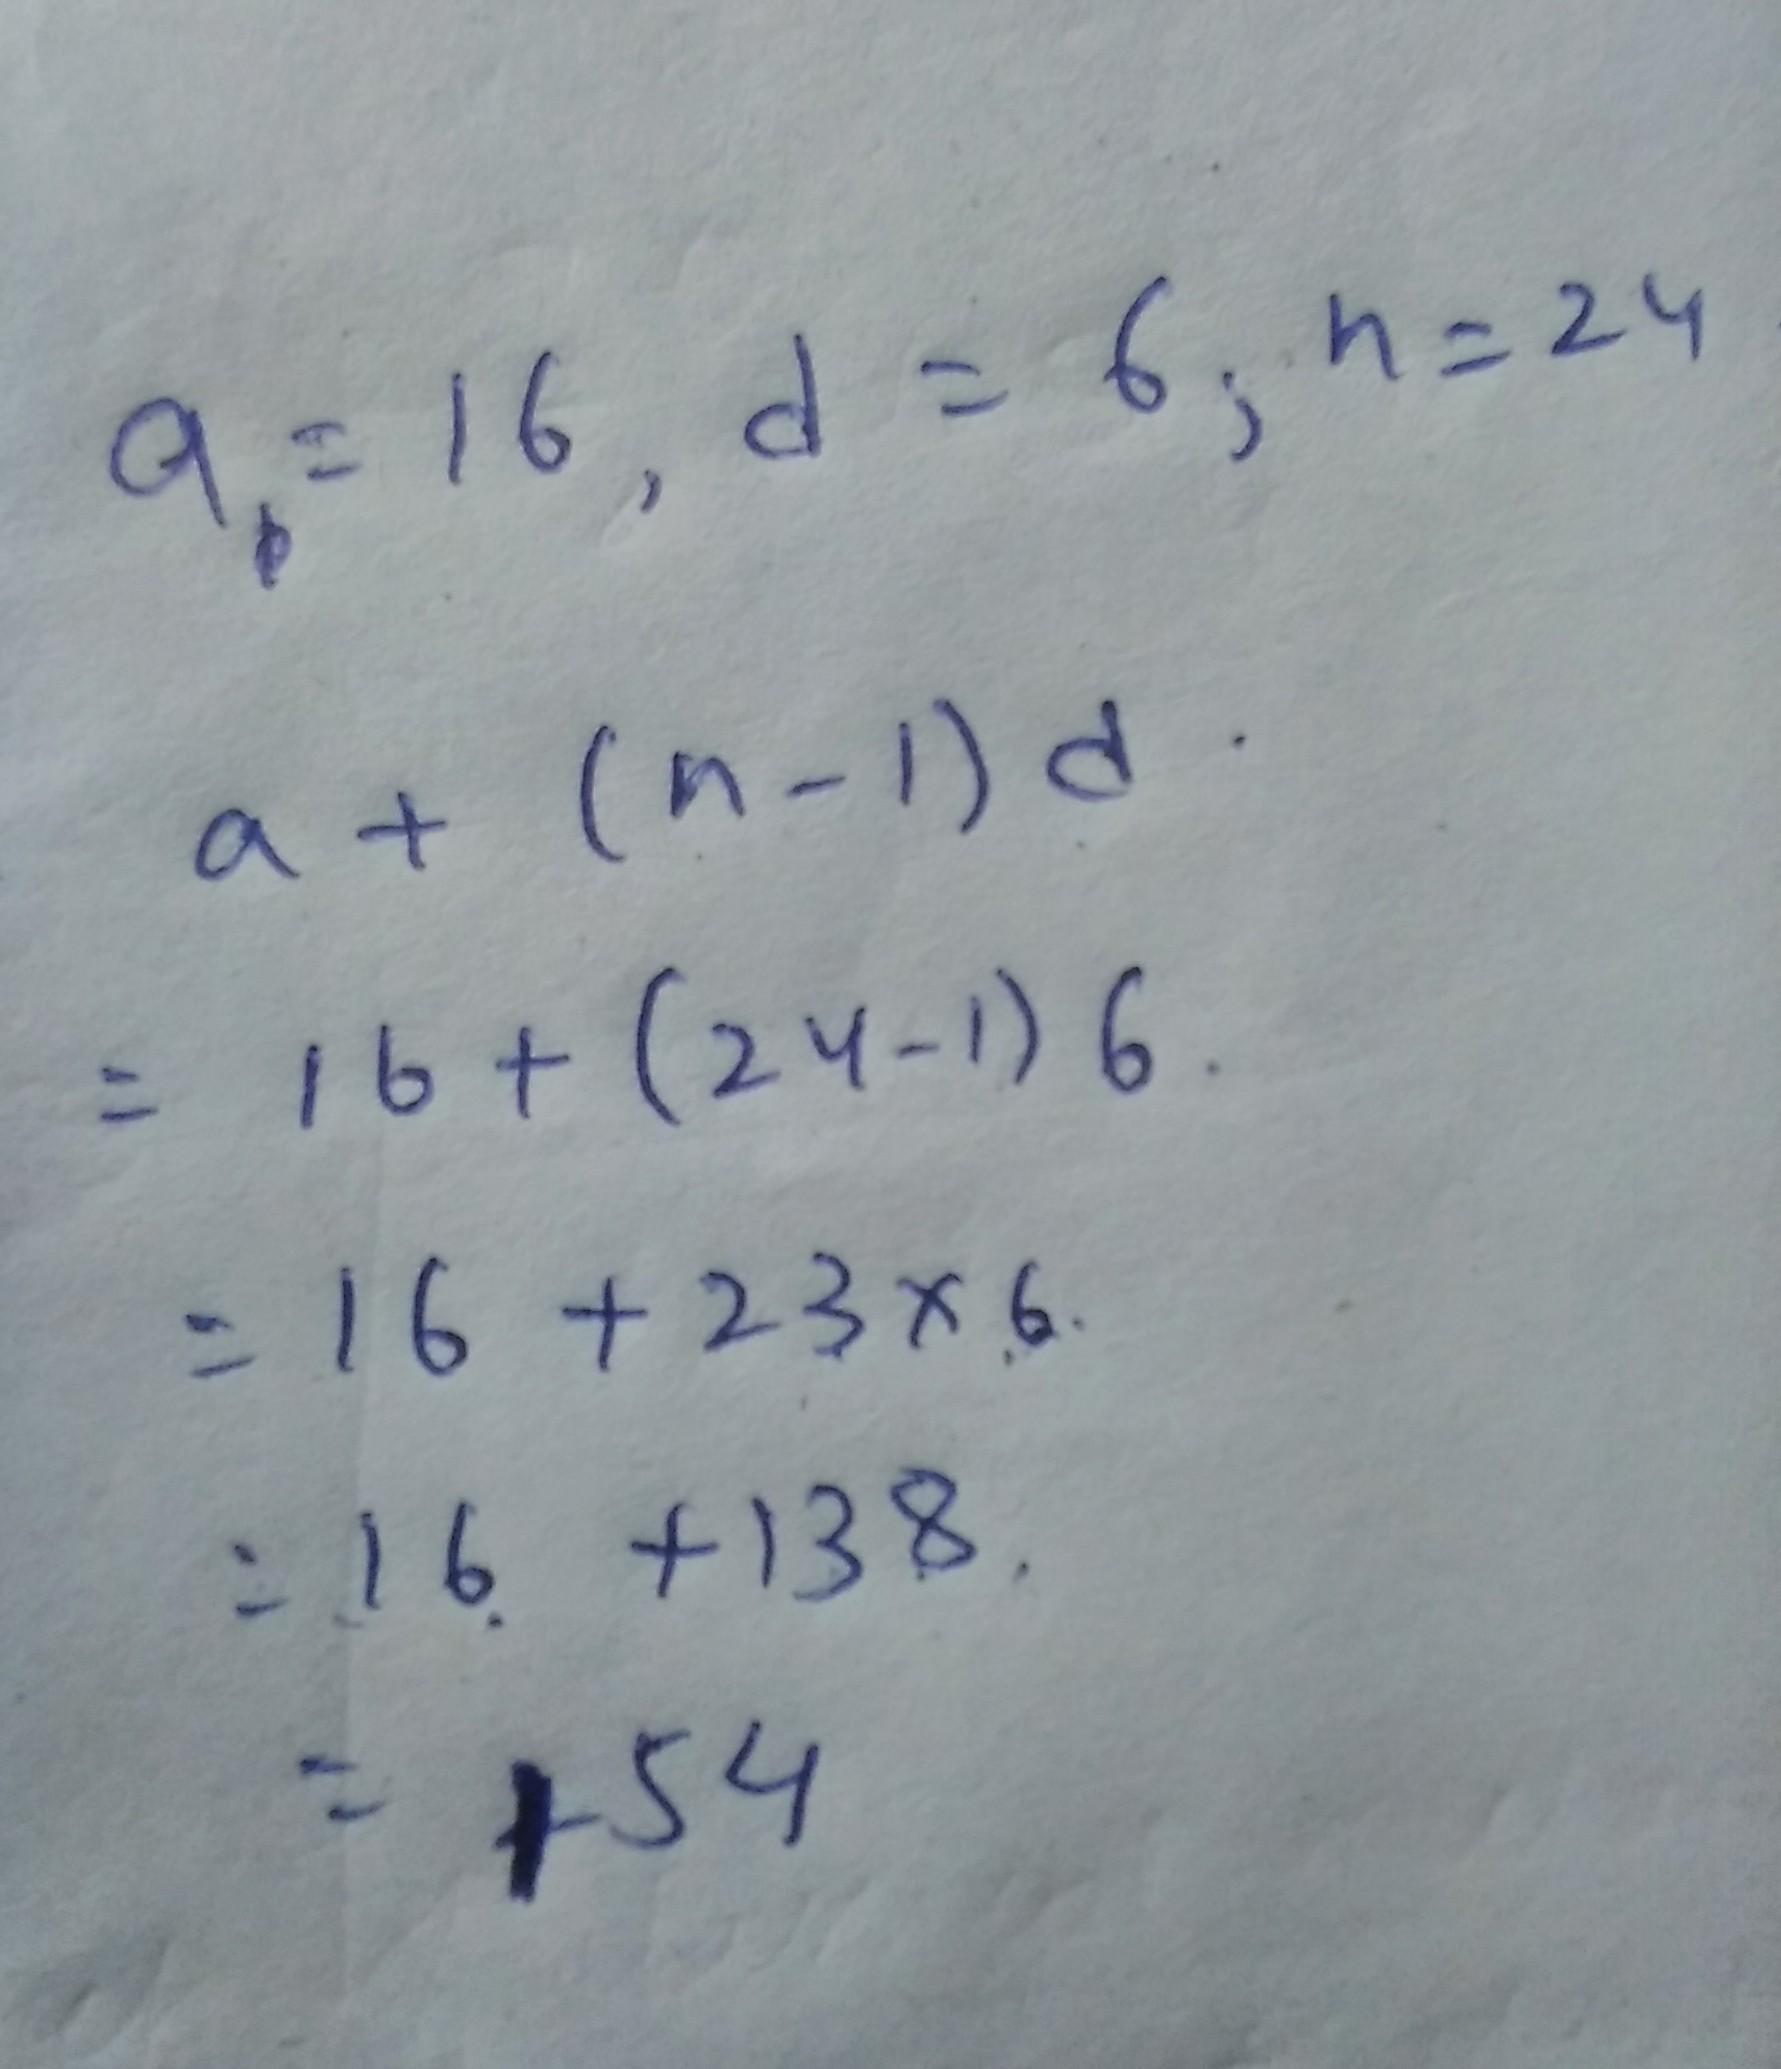 a₁ = 16, d = 6; n = 24
a + (n - 1) d.
= 16 + (24 - 1) 6.
= 16 + 23 × 6.
= 16 + 138.
= 154